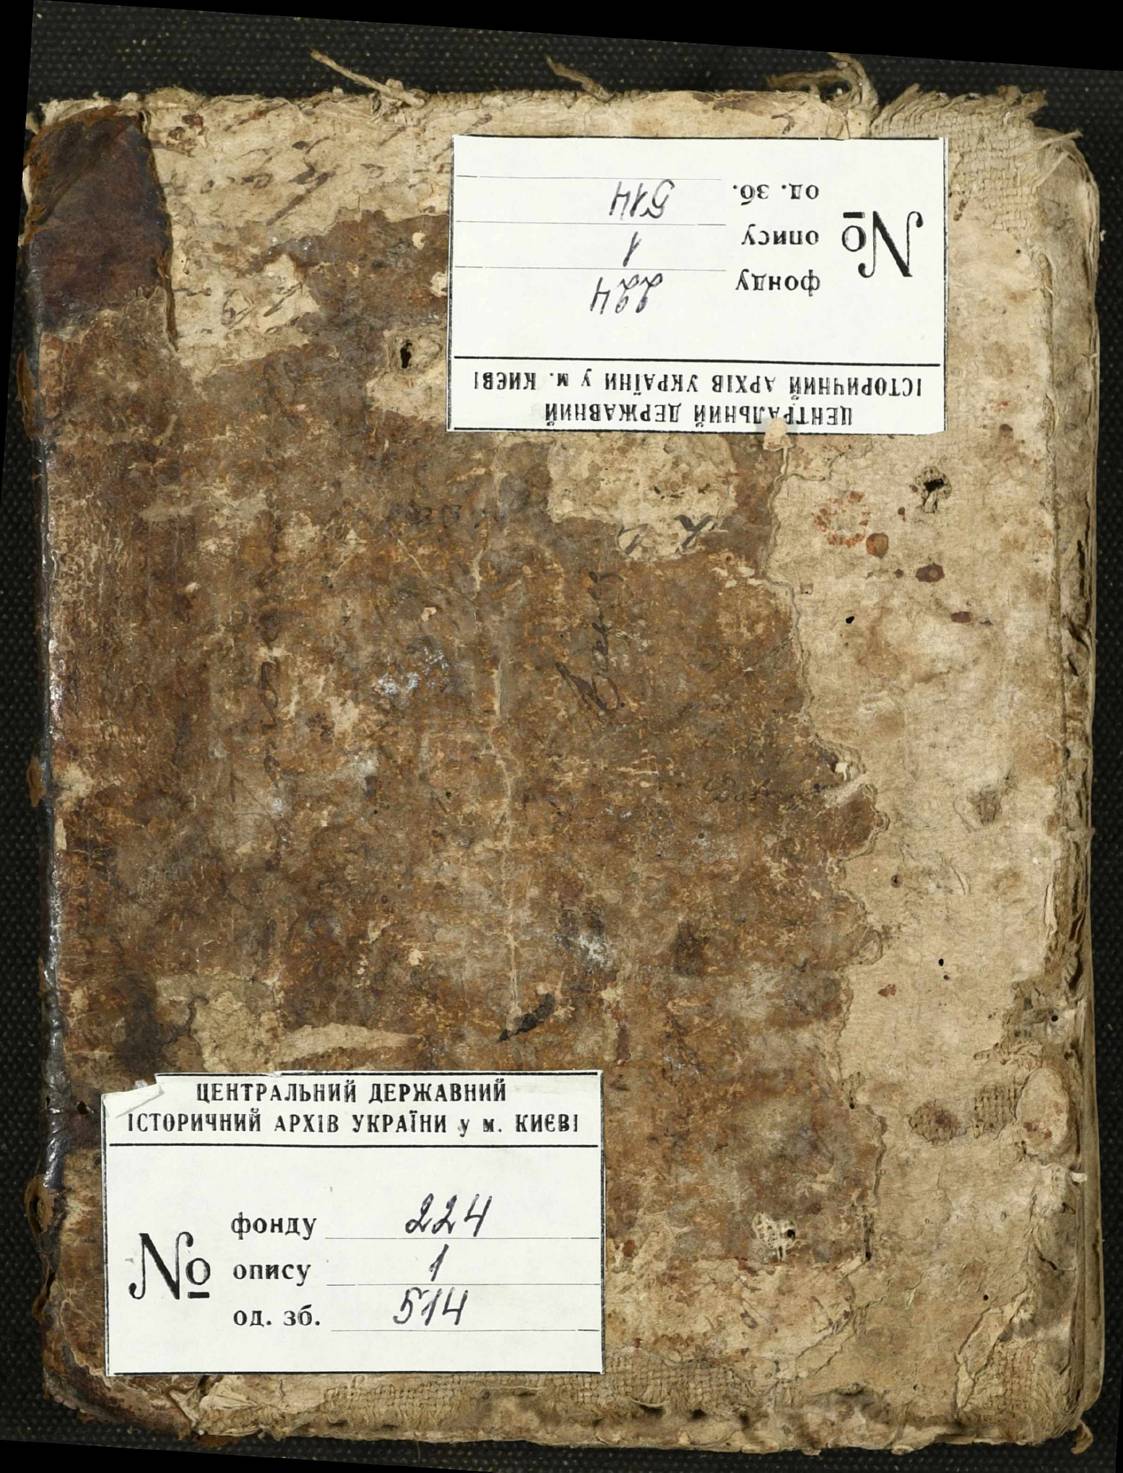 ЦЕНТРАЛЬНИЙ ДЕРЖАВНИЙ
ІСТОРИЧНИЙ АРХІВ УКРАЇНИ у м. КИЄВІ
№
фонду 224
опису 1
од. зб. 514
ЦЕНТРАЛЬНИЙ ДЕРЖАВНИЙ
ІСТОРИЧНИЙ АРХІВ УКРАЇНИ у м. КИЄВІ
№
фонду 224
опису 1
од. зб. 514